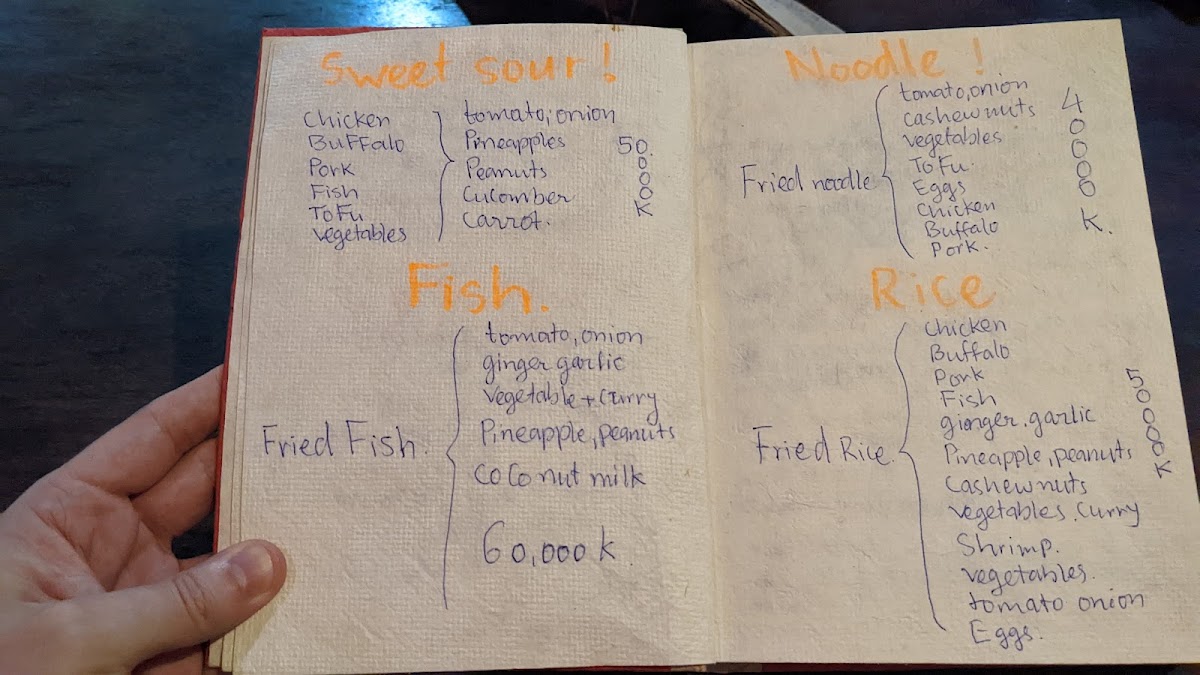 Sweet sour!
Chicken
Buffalo
Pork
Fish
ToFu
vegetables
tomato, onion
Pineapples
Peanuts
Cucomber
Carrot.
50.
0
0
0
K
Fish.
Fried Fish.
tomato, onion
ginger garlic
vegetable + curry
Pineapple, peanuts
coconut milk
60,000 k.
Noodle!
Fried noodle
tomato, onion
cashewnuts
vegetables
ToFu.
Eggs
Chicken
Buffalo
Pork.
4
0
0
0
0
K.
Rice
Fried Rice.
Chicken
Buffalo
Pork
Fish
ginger, garlic
Pineapple, peanuts
Cashewnuts
vegetables. Curry
Shrimp.
vegetables.
tomato onion
Eggs.
5
0
0
0
0
K